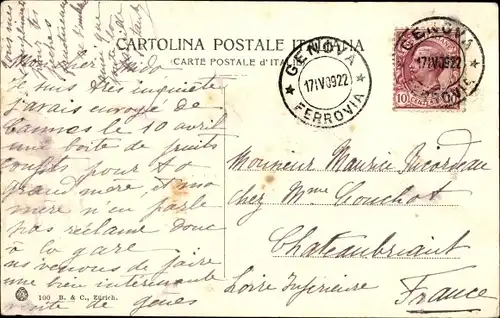 CARTOLINA POSTALE ITALIANA
(CARTE POSTALE D'ITALIE)
GENOVA
17 IV 09 22
FERROVIA
GENOVA
17 IV 09 22
FERROVIA
10
Mon cher
je suis très inquiète
j'avais envoyé de
Cannes le 10 avril
une boite de fruits
confits pour ta
grand mère et ma
mère n'en parle
pas réclame donc
à la gare
ns venons de faire
une bien intéressante
visite de gênes
Monsieur Maurice Ricordeau
chez Mme Gouchot
Chateaubriant
Loire Inférieure
France
100 B. & C., Zürich.